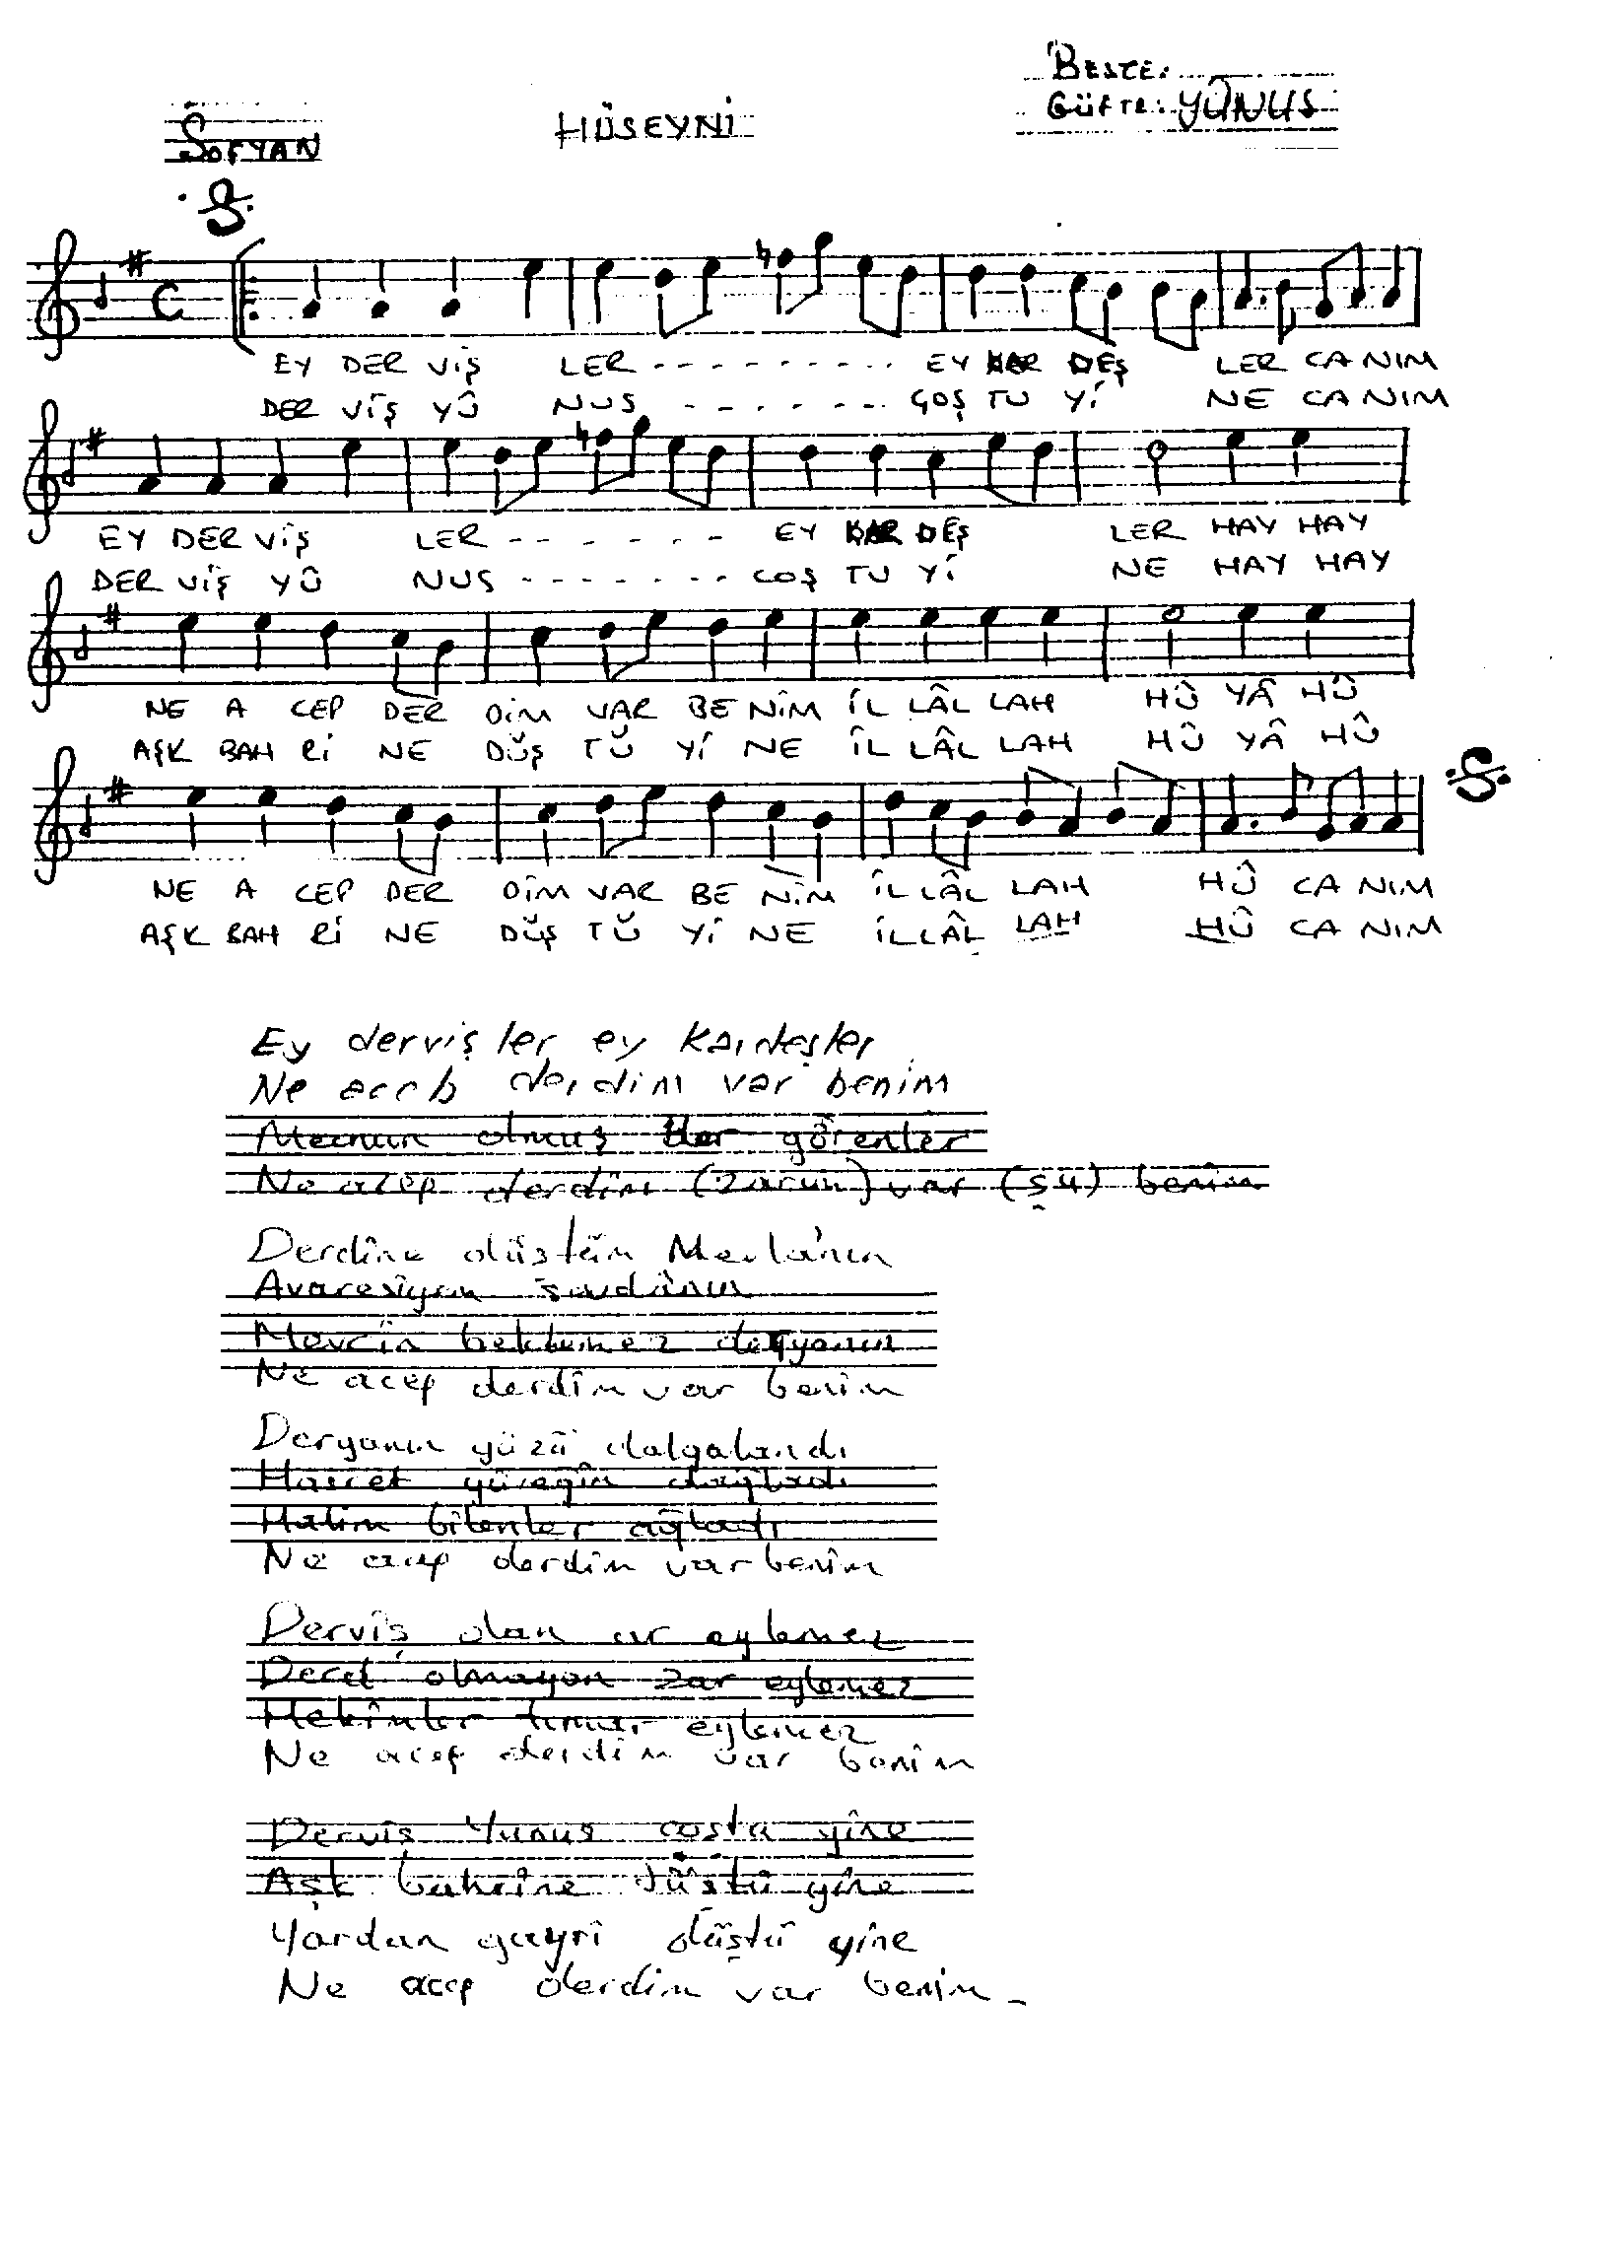 BESTE:
GÜFTE: YÛNUS
SOFYAN
HÜSEYNİ
EY DER VİŞ LER - - - - - - - - - - EY KAR DEŞ LER CA NIM
DER VİŞ YÛ NUS - - - - - - - COŞ TU Yİ NE CA NIM
EY DER VİŞ LER - - - - - - - EY KAR DEŞ LER HAY HAY
DER VİŞ YÛ NUS - - - - - - - COŞ TU Yİ NE HAY HAY
NE A CEP DER DİM VAR BE NİM İL LÂL LAH HÛ YÂ HÛ
AŞK BAH Rİ NE DÜŞ TÜ Yİ NE İL LÂL LAH HÛ YÂ HÛ
NE A CEP DER DİM VAR BE NİM İL LÂL LAH HÛ CA NIM
AŞK BAH Rİ NE DÜŞ TÜ Yİ NE İL LÂL LAH HÛ CA NIM
Ey dervişler ey kardeşler
Ne aceb derdim var benim
Mecnun olmuş der görenler
Ne acep derdim (zarım) var (şu) benim
Derdine düştüm Mevla'nın
Avaresiyem sevdanın
Mevcin beklemez deryanın
Ne acep derdim var benim
Deryanın yüzü dalgalandı
Hasret yüreğim dağladı
Halim bilenler ağladı
Ne acep derdim var benim
Derviş olan ar eylemez
Dert olmayan zar eylemez
Hekimler timar eylemez
Ne acep derdim var benim
Derviş Yunus coştu yine
Aşk bahrine düştü yine
Yardan gayri düştü yine
Ne acep derdim var benim